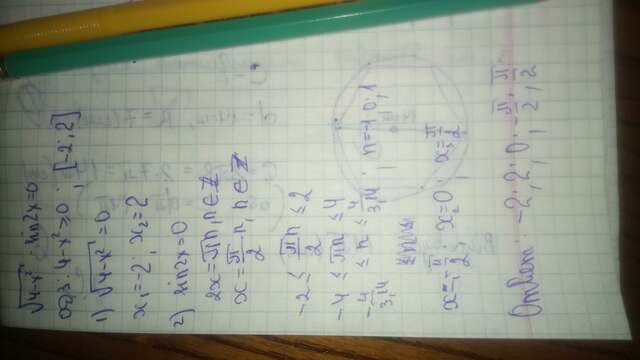 √4-x² · sin2x=0
ОДЗ: 4-x²≥0; [-2;2]
1) √4-x² =0
x₁=-2; x₂=2
2) sin2x=0
2x=πn, n∈Z
x=π/2 n, n∈Z
-2≤ πn/2 ≤2
-4≤πn≤4
-4/3,14 ≤n≤ 4/3,14; n=-1, 0; 1
x₁=-π/2; x₂=0; x₃=π/2
Ответ: -2; 2; 0; -π/2; π/2